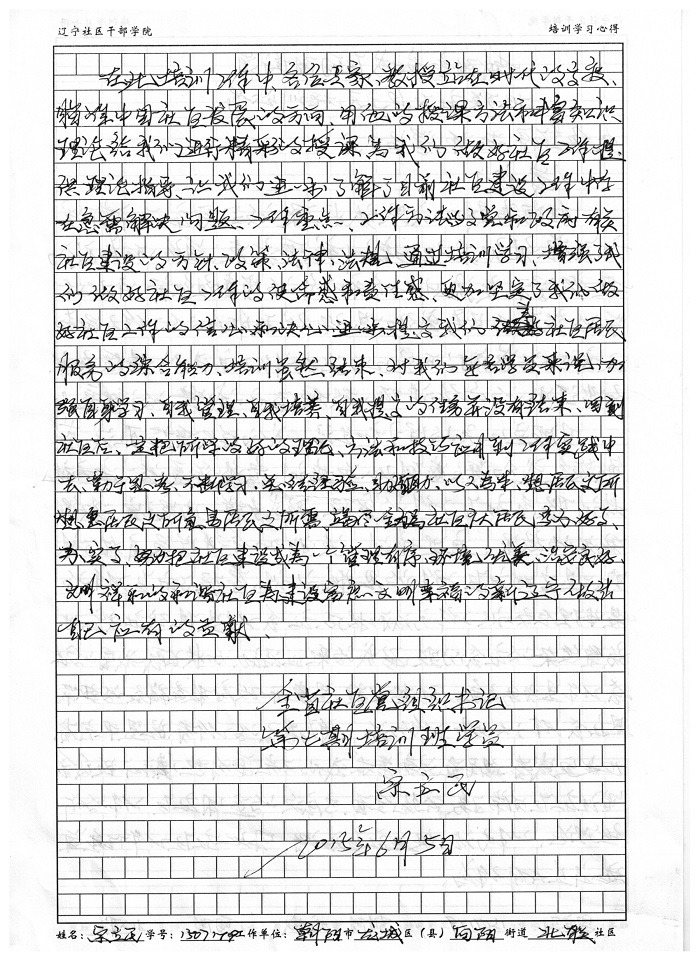 辽宁社区干部学院 培训学习心得
在此培训工作中,各位专家、教授站在时代的高度,
瞄准中国社区发展的方向,用他的授课方法和丰富知识
理论给我们进行精彩的授课,为我们做好社区工作提
供理论指导,让我们进一步了解了目前社区建设工作中存
在急需解决问题、工作重点、工作方法及党和政府有关
社区建设的方针、政策、法律、法规。通过培训学习,增强了我
们做好社区工作的使命感和责任感,更加坚定了我们做
好社区工作的信心和决心,进一步提高我们社区居民
服务的综合能力、培训虽然结束,对我们每名学员来说,加
强自身学习、自我管理、自我培养、自我提高的任务并没有结束,回到
社区后,要把所学的好的理论、方法和技巧运用到工作实践中
去,勤于思考、不断学习、总结经验,以人为本,想居民之所
想,急居民之所急,居民之所需,社区广大居民多办好事、
办实事,努力把社区建设成为一个管理有序、环境优美、治安良好、
文明祥和的和谐社区,为建设富庶、文明幸福的新辽宁做出
自己应有的贡献。
全省社区党组织书记
第七期培训班学员
宋立民
2015年6月5日
姓名:宋立民 学号: 工作单位:朝阳市龙城区(县)向阳街道 社区